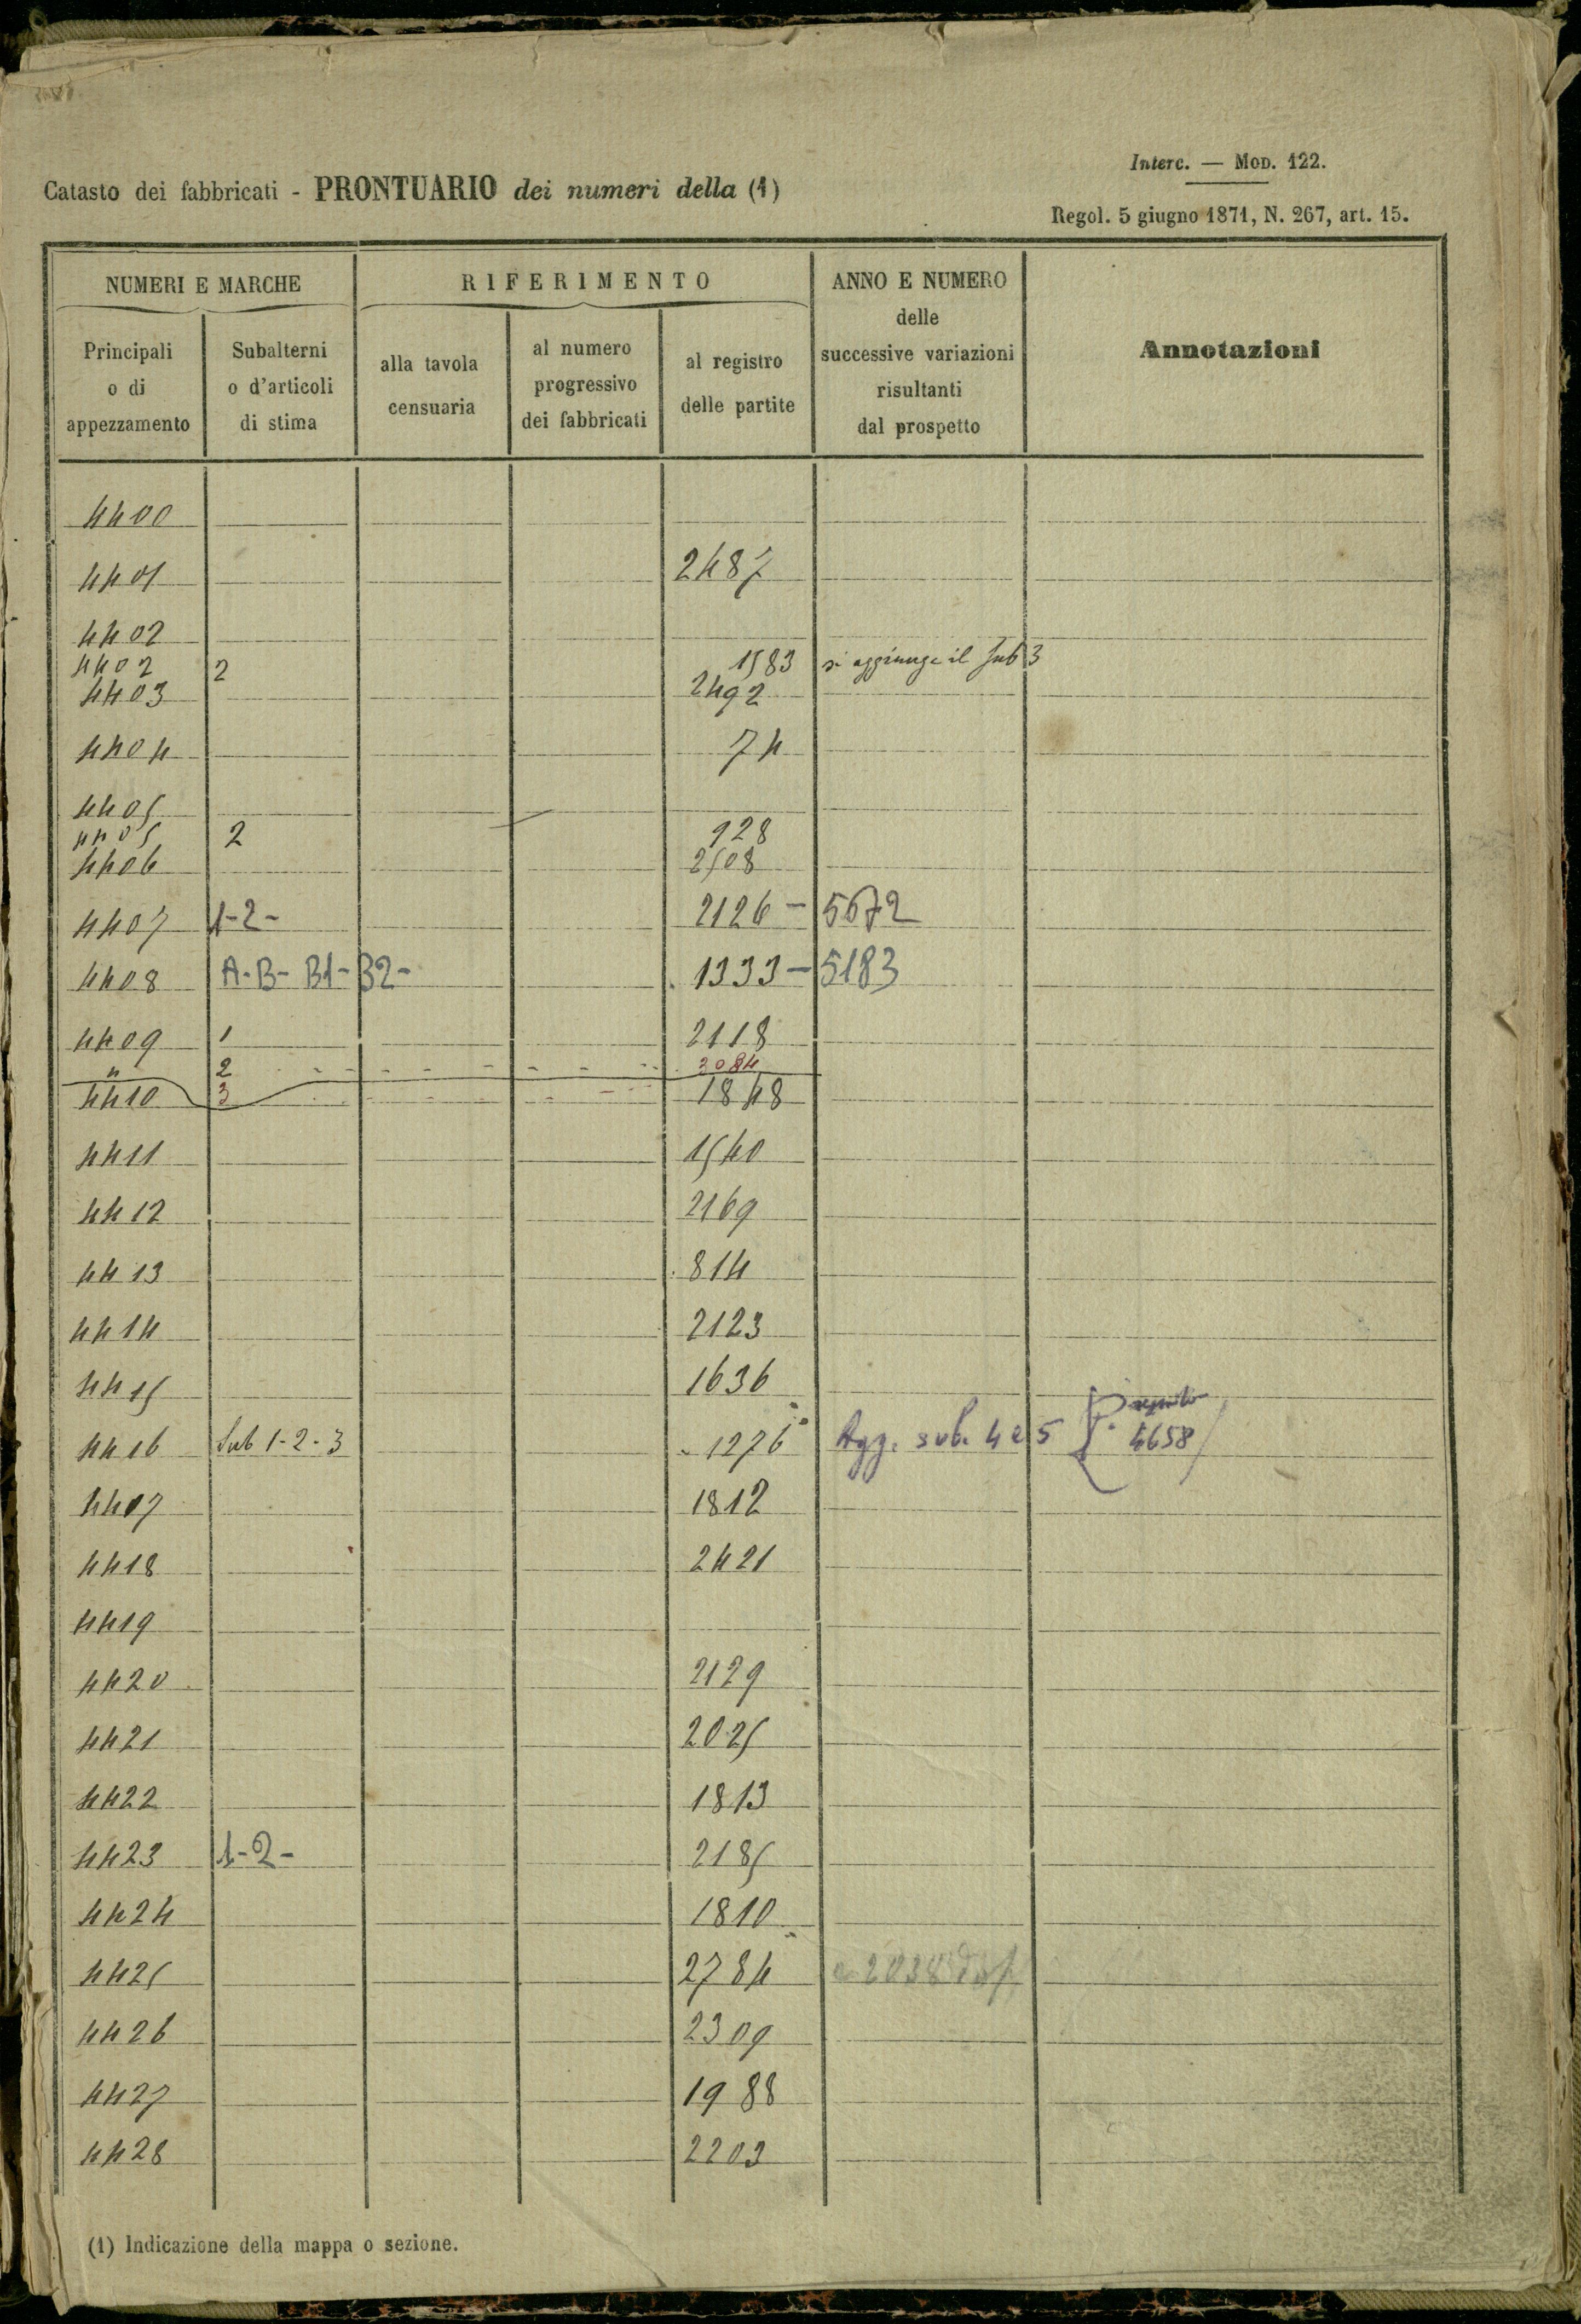 Interc. — MOD. 122.
Catasto dei fabbricati - PRONTUARIO dei numeri della (1)
Regol. 5 giugno 1871, N. 267, art. 15.
NUMERI E MARCHE RIFERIMENTO ANNO E NUMERO delle successive variazioni risultanti dal prospetto Annotazioni
Principali o di appezzamento Subalterni o d'articoli di stima alla tavola censuaria al numero progressivo dei fabbricati al registro delle partite
4400
4401 2487
4402
4402 2 1583 si aggiunge il sub 3
4403 2492
4404 74
4405
4405 2 928
4406 2508
4407 1-2- 2126 - 5672
4408 A-B- B1-B2- 1333 - 5183
4409 1 2118
" 2 3084
4410 3 1848
4411 1540
4412 2169
4413 814
4414 2123
4415 1636
4416 Sub 1-2-3 1276 Agg. sub. 4 e 5 4658
4407 1812
4418 2421
4419
4420 2129
4421 2025
4422 1813
4423 1-2- 2185
4424 1810
4425 2784 2038
4426 2309
4427 1988
4428 2203
(1) Indicazione della mappa o sezione.